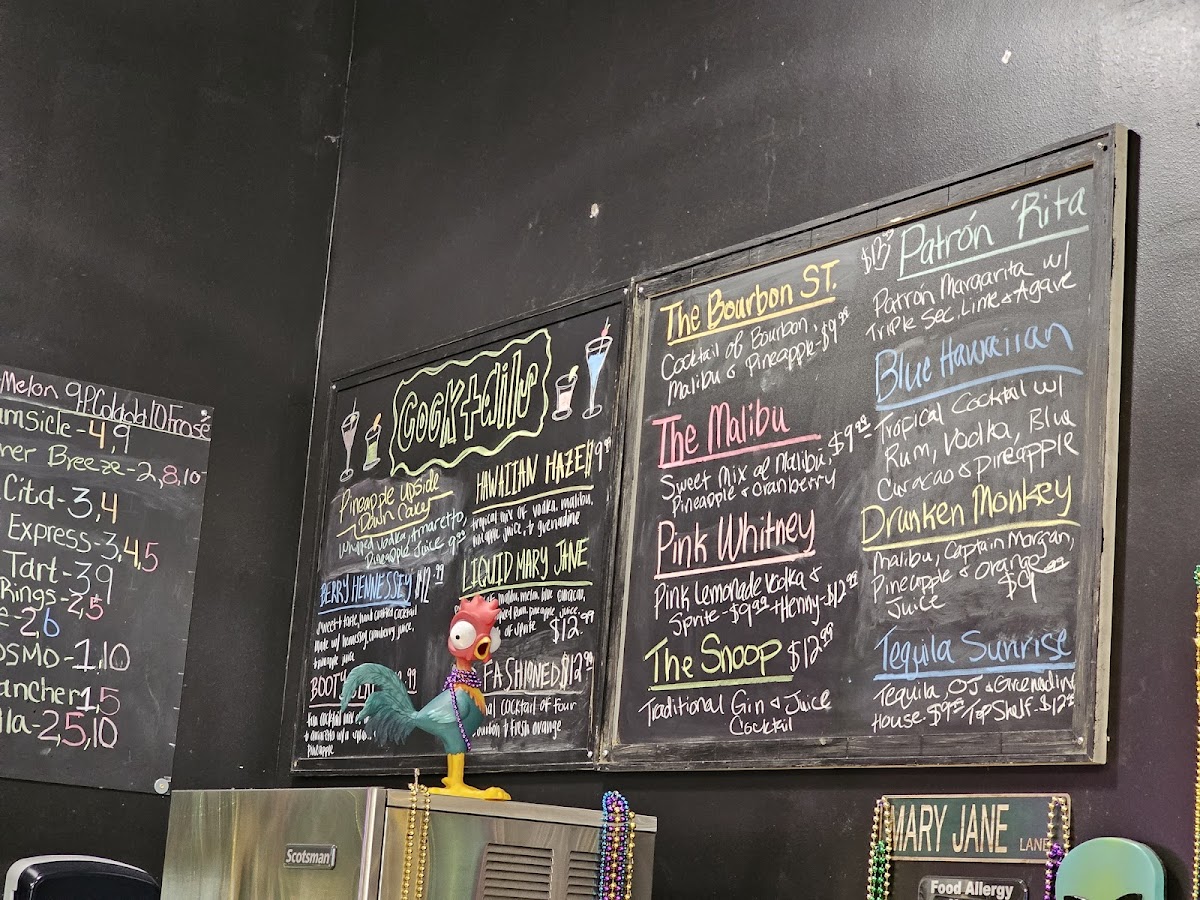 Melon 9,P.Colada 10 Frosé
amsicle-4,9
ner Breeze-2,8,10
Citd-3,4
Express-3,4,5
Tart-3,9
Rings-2,5
e-2,6
osmo-1,10
ancher 1,5
lla-2,5,10
Cocktails
Pineapple Upside
Down Cake
Whipped Vodka, Amaretto,
Pineapple Juice 9.99
BERRY HENNESSEY $12.99
sweet & tart, hand crafted cocktail
made w/ hennessy, cranberry juice,
& pineapple juice
BOOTY
pineapple
HAWAIIAN HAZE $9.99
tropical mix of vodka, malibu,
juice, & grenadine
LIQUID MARY JANE
malibu, melon, blue curacao,
Rum, pineapple juice,
of sprite $12.99
FASHIONED $12.99
cocktail of four
bourbon & fresh orange
The Bourbon ST.
Cocktail of Bourbon,
Malibu & Pineapple-$9.99
The Malibu $9.99
Sweet Mix of Malibu,
Pineapple & Cranberry
Pink Whitney
Pink Lemonade Vodka &
Sprite-$9.99 +Henny-$12.99
The Snoop $12.99
Traditional Gin & Juice
Cocktail
Patrón 'Rita
Patrón Margarita w/
Triple Sec, Lime & Agave
Blue Hawaiian
Tropical Cocktail w/
Rum, Vodka, Blue
Curacao & Pineapple
Drunken Monkey
Malibu, Captain Morgan,
Pineapple & Orange
Juice $9.99
Tequila Sunrise
Tequila, OJ & Grenadine
House-$9.99 Top Shelf-$12.99
Scotsman
MARY JANE LANE
Food Allergy